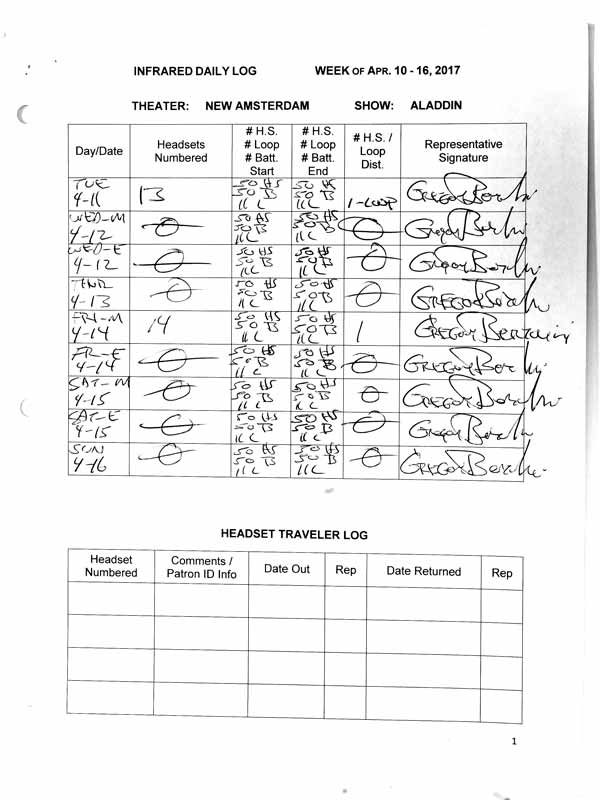 INFRARED DAILY LOG WEEK OF APR. 10 - 16, 2017
THEATER: NEW AMSTERDAM SHOW: ALADDIN
Day/Date Headsets Numbered # H.S. # Loop # Batt. Start # H.S. # Loop # Batt. End # H.S. / Loop Dist. Representative Signature
TUE 4-11 13 50 HS 50 B 11 C 50 HS 50 B 11 C 1-LOOP GREGOR
WED-M 4-12 0 50 HS 50 B 11 C 50 HS 50 B 11 C 0 GREGOR
WED-E 4-12 0 50 HS 50 B 11 C 50 HS 50 B 11 C 0 GREGOR
THUR 4-13 0 50 HS 50 B 11 C 50 HS 50 B 11 C 0 GREGOR
FRI-M 4-14 14 50 HS 50 B 11 C 50 HS 50 B 11 C 1 GREGOR
FR-E 4-14 0 50 HS 50 B 11 C 50 HS 50 B 11 C 0 GREGOR
SAT-M 4-15 0 50 HS 50 B 11 C 50 HS 50 B 11 C 0 GREGOR
SAT-E 4-15 0 50 HS 50 B 11 C 50 HS 50 B 11 C 0 GREGOR
SUN 4-16 0 50 HS 50 B 11 C 50 HS 50 B 11 C 0 GREGOR
HEADSET TRAVELER LOG
Headset Numbered Comments / Patron ID Info Date Out Rep Date Returned Rep
1